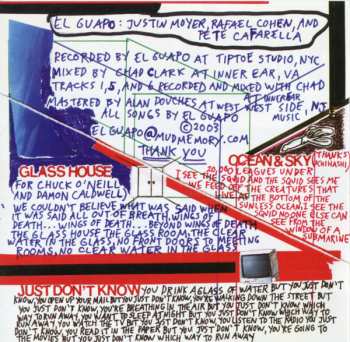 EL GUAPO: JUSTIN MOYER, RAFAEL COHEN, AND
PETE CAFARELLA
RECORDED BY EL GUAPO AT TIPTOE STUDIO, NYC
MIXED BY CHAD CLARK AT INNER EAR, VA
TRACKS 1,5, AND 6 RECORDED AND MIXED WITH CHAD
AT INNER EAR
MASTERED BY ALAN DOUCHES AT WEST WEST SIDE, NJ
MUSIC
ALL SONGS BY EL GUAPO
©2003
ELGUAPO@MUDMEMORY.COM
THANK YOU
GLASS HOUSE
(FOR CHUCK O'NEILL
AND DAMON CALDWELL)
WE COULDN'T BELIEVE WHAT WAS SAID WHEN
IT WAS SAID ALL OUT OF BREATH, WINGS OF
DEATH... WINGS OF DEATH... BEYOND WINGS OF DEATH
THE GLASS HOUSE THE GLASS ROOM, THE CLEAR
WATER IN THE GLASS, NO FRONT DOORS TO MEETING
ROOMS, NO CLEAR WATER IN THE GLASS
OCEAN & SKY
(THANKS
UCHIHASHI)
20,000 LEAGUES UNDER
I SEE THE SQUID AND THE SQUID SEES ME
WE FEED OFF THE CREATURES THAT
LIVE AT THE BOTTOM OF THE
SUNLESS OCEAN. I SEE THE
SQUID NO ONE ELSE CAN
SEE FROM THE
WINDOW OF A
SUBMARINE
JUST DON'T KNOW
YOU DRINK A GLASS OF WATER BUT YOU JUST DON'T
KNOW, YOU OPEN UP YOUR MAIL BUT YOU JUST DON'T KNOW, YOU'RE WALKING DOWN THE STREET BUT
YOU JUST DON'T KNOW, YOU'RE BREATHING IN THE AIR BUT YOU JUST DON'T KNOW WHICH
WAY TO RUN AWAY, YOU WANT TO SLEEP AT NIGHT BUT YOU JUST DON'T KNOW WHICH WAY TO
RUN AWAY, YOU WATCH THE TV BUT YOU JUST DON'T KNOW, YOU LISTEN TO THE RADIO YOU JUST
DON'T KNOW, YOU READ IT IN THE PAPER BUT YOU JUST DON'T KNOW, YOU'RE GOING TO
THE MOVIES BUT YOU JUST DON'T KNOW WHICH WAY TO RUN AWAY